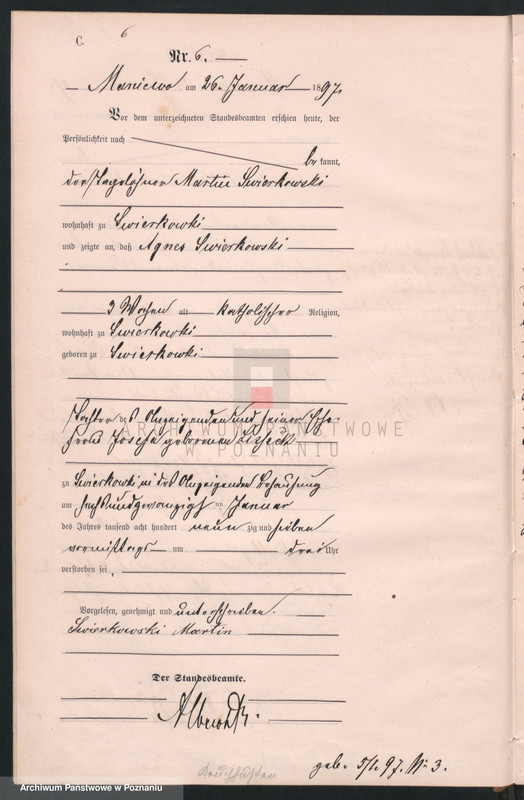 C. 6
Nr. 6.
Maniewo am 26. Januar 1897.
Vor dem unterzeichneten Standesbeamten erschien heute, der
Persönlichkeit nach
bekannt,
der Tagelöhner Martin Swierkowski
wohnhaft zu Swierkowki
und zeigte an, daß Agnes Swierkowski
3 Wochen alt katholischer Religion,
wohnhaft zu Swierkowki
geboren zu Swierkowki
Tochter des Anzeigenden und seiner Ehe-
frau Josepha geborenen
ARCHIWUM PAŃSTWOWE
W POZNANIU
zu Swierkowki in des Anzeigenden Behausung
am sechsundzwanzigsten Januar
des Jahres tausend acht hundert neunzig und sieben
vormittags um drei Uhr
verstorben sei.
Vorgelesen, genehmigt und unterschrieben.
Swierkowski Martin
Der Standesbeamte.
Albrecht.
Keuchhusten
geb. 5/1. 97. Nr. 3.
Archiwum Państwowe w Poznaniu